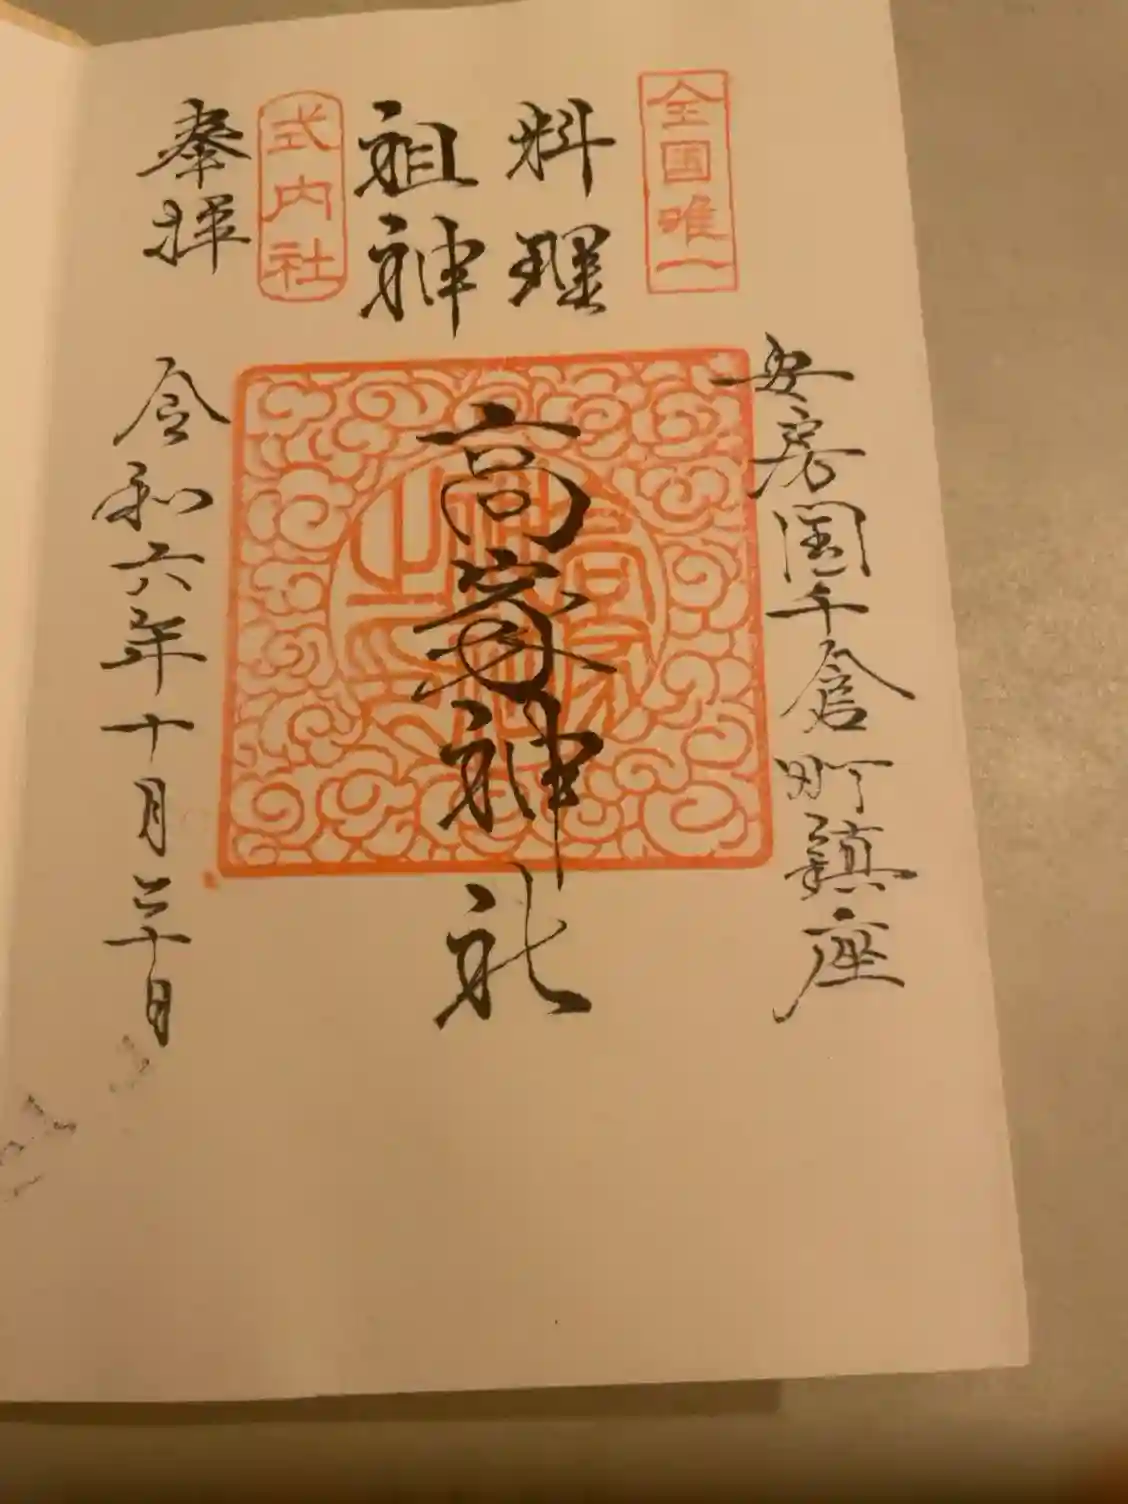 全国唯一
安房国千倉町鎮座
料理
祖神
高家神社
式内社
奉拝
令和六年十月二十日